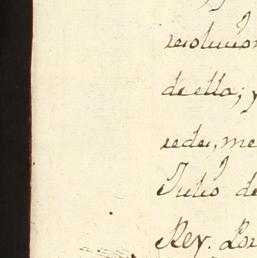 resolucion
de ella; y
sedes, me
Julio de
Rey. Lor